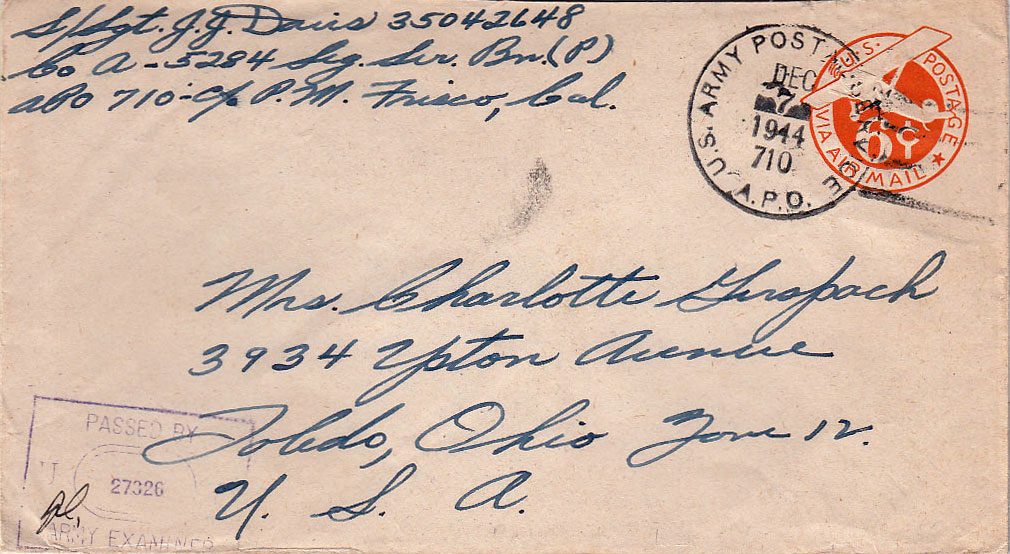 S/Sgt. J.J. Davis 35042648
Co A - 5284 Sig. Ser. Bn. (P)
APO 710 - c/o P.M. Frisco, Cal.
U.S. ARMY POSTAL
DEC
7
1944
710
A.P.O.
U.S. POSTAGE
6¢
VIA AIR MAIL
Mrs. Charlotte Gerspach
3934 Upton Avenue
Toledo, Ohio Zone 12.
U. S. A.
PASSED BY
U
27326
ARMY EXAMINER